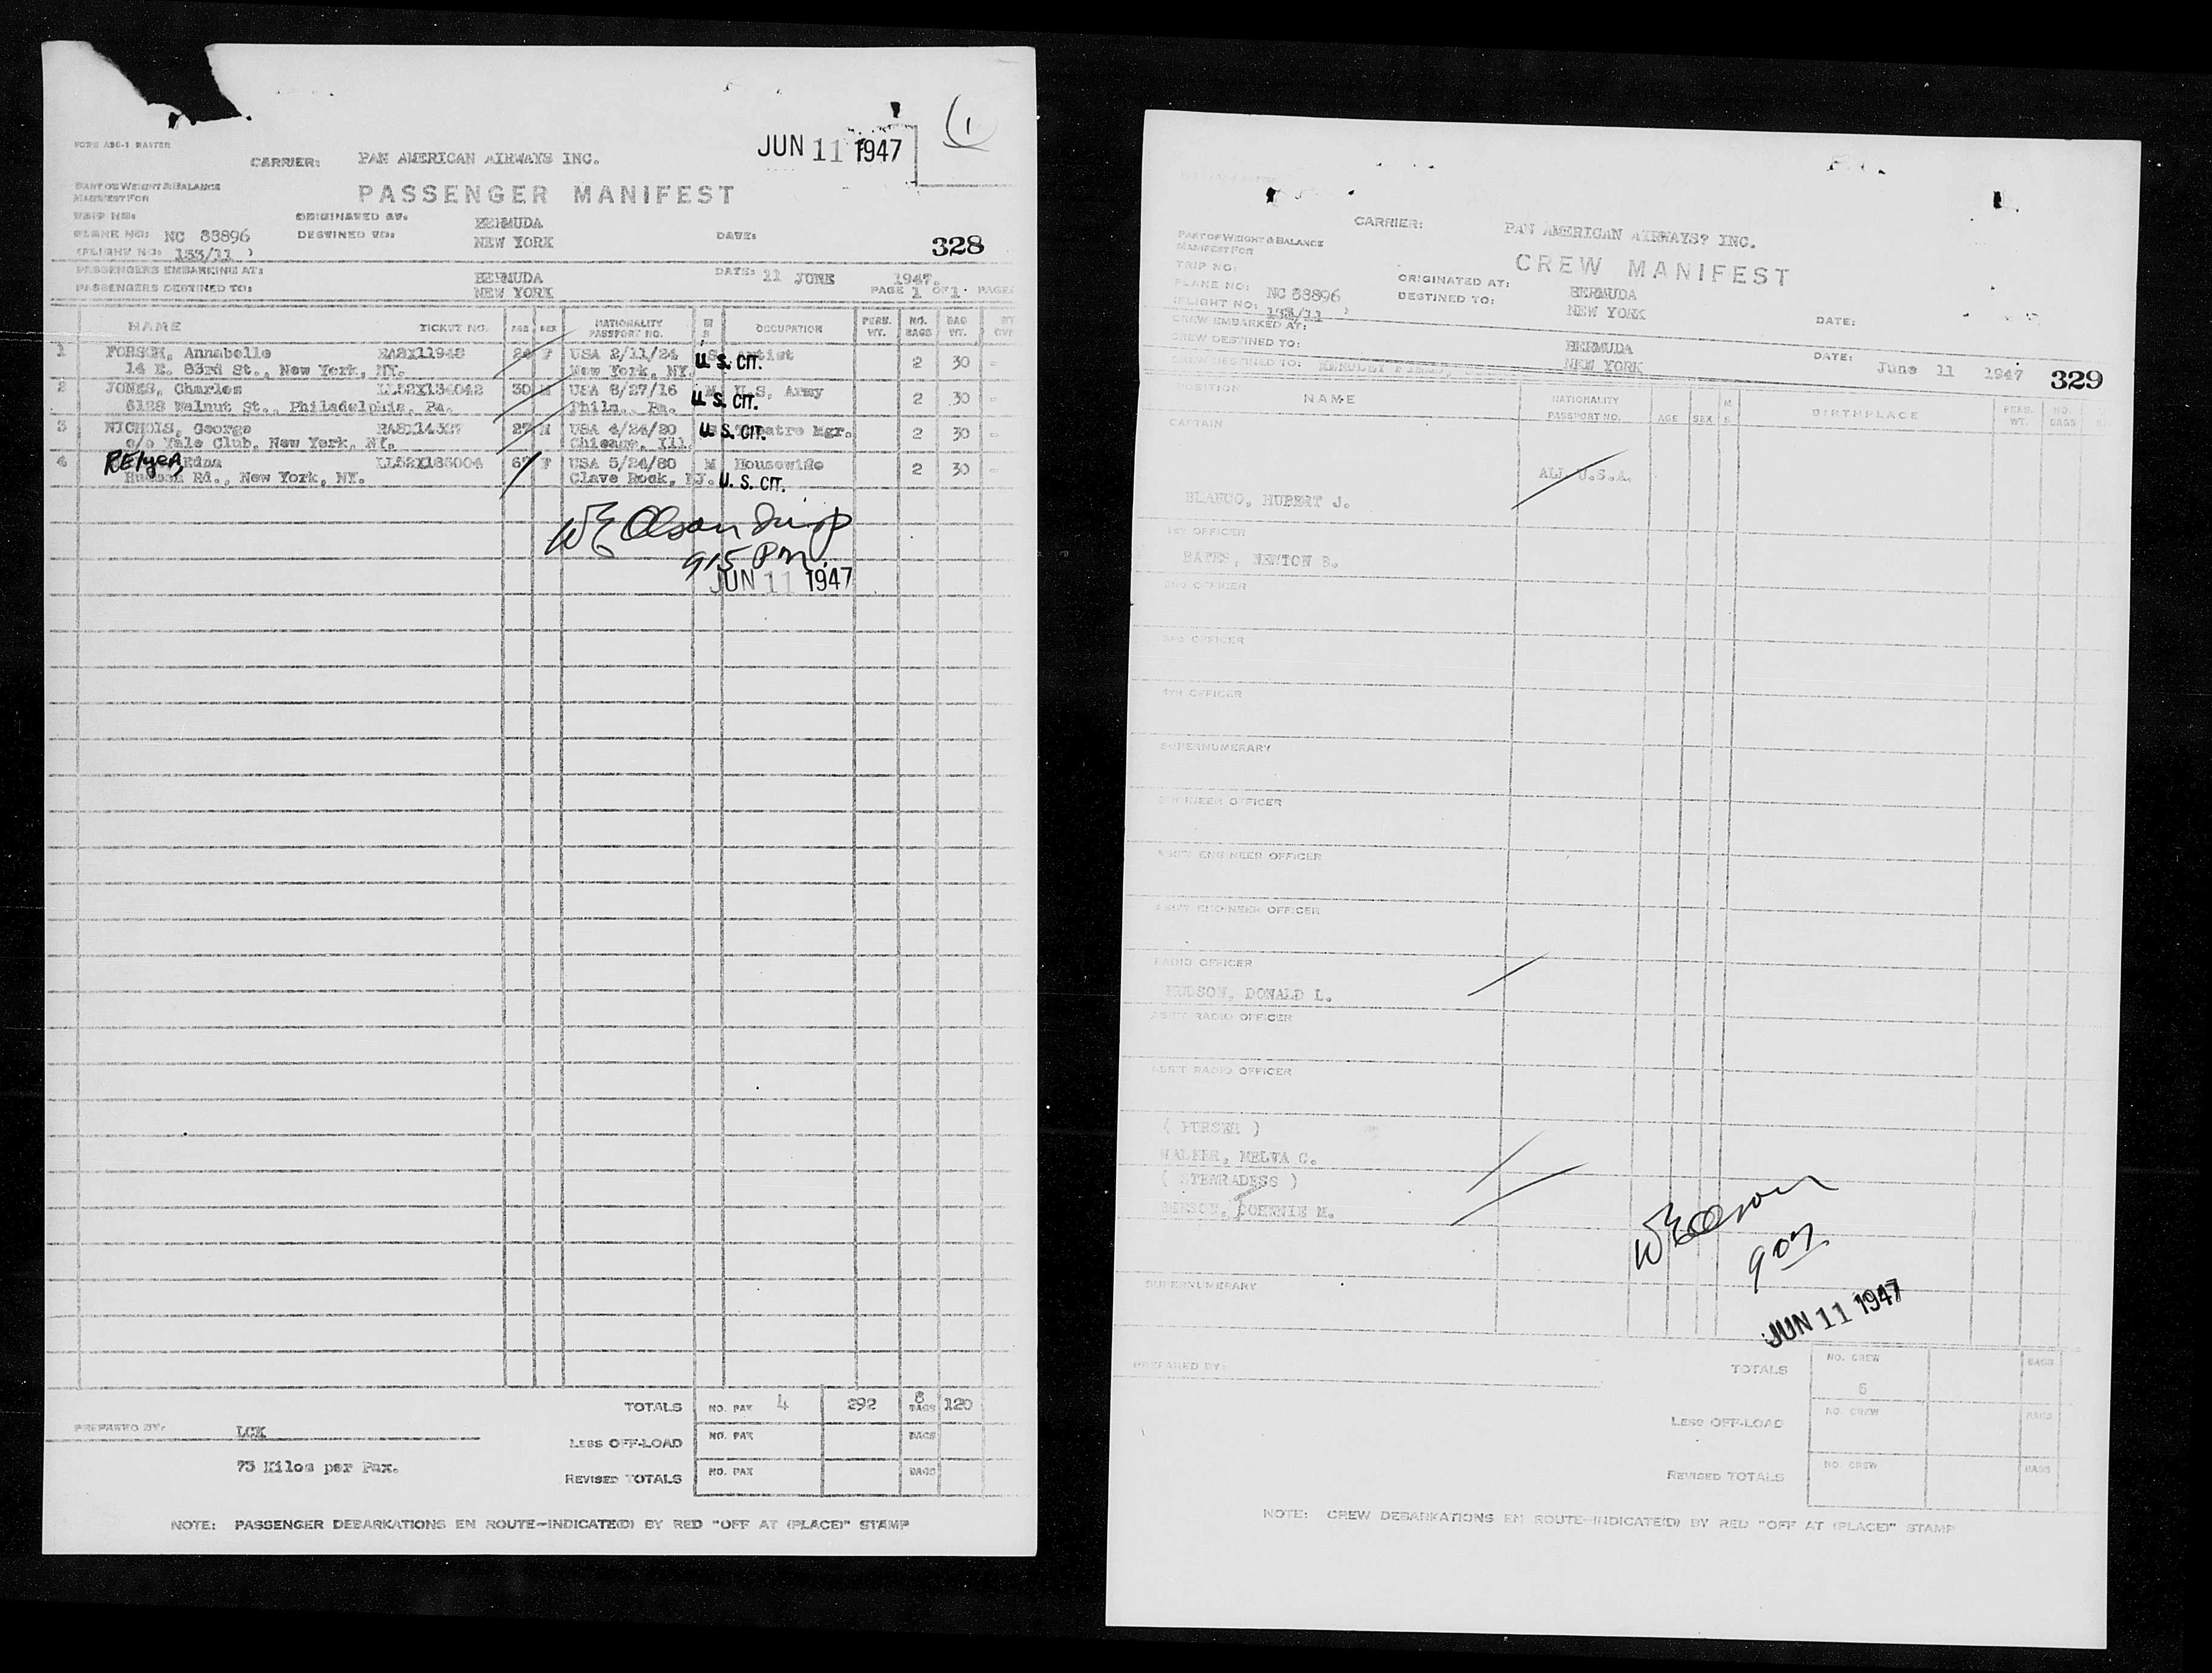 FORM ABC-1 MASTER
CARRIER: PAN AMERICAN AIRWAYS INC.
JUN 11 1947
1
PART OF WEIGHT & BALANCE
MANIFEST FOR
PASSENGER MANIFEST
TRIP NO:
ORIGINATED AT: BERMUDA
PLANE NO: NC 88896
DESTINED TO: NEW YORK
DATE:
328
(FLIGHT NO: 153/11 )
PASSENGERS EMBARKING AT: BERMUDA
DATE: 11 JUNE 1947.
PASSENGERS DESTINED TO: NEW YORK
PAGE 1 OF 1 PAGES
NAME TICKET NO. AGE SEX NATIONALITY PASSPORT NO. M S OCCUPATION PERS. WT. NO. BAGS BAG WT.
1 Annabelle F USA 2/11/24 S Artist 2 30 -
14 E. 83rd St., New York, NY. New York, NY. U.S. CIT.
2 JONES, Charles LL52X134042 30 M USA 8/27/16 M U.S. Army 2 30 -
6128 Walnut St., Philadelphia, Pa. Phila., Pa. U.S. CIT.
3 NICHOLS, George 27 M USA 4/24/20 S Theatre Mgr. 2 30 -
c/o Yale Club, New York, NY. Chicago, Ill. U.S. CIT.
4 RElyea, Edna LL52X185004 67 F USA 5/24/80 M Housewife 2 30 -
Rd., New York, NY. Clave Rock, NJ. U.S. CIT.
WE Olson
915 PM
JUN 11 1947
TOTALS NO. PAX 4 292 8 BAGS 120
PREPARED BY: LCK
LESS OFF-LOAD NO. PAX BAGS
73 Kilos per Pax.
REVISED TOTALS NO. PAX BAGS
NOTE: PASSENGER DEBARKATIONS EN ROUTE-INDICATE(D) BY RED "OFF AT (PLACE)" STAMP
CARRIER: PAN AMERICAN AIRWAYS? INC.
PART OF WEIGHT & BALANCE
MANIFEST FOR
CREW MANIFEST
TRIP NO:
ORIGINATED AT: BERMUDA
PLANE NO: NC 88896
DESTINED TO: NEW YORK
DATE:
(FLIGHT NO: 153/11 )
CREW EMBARKED AT: BERMUDA
DATE: June 11 1947
CREW DESTINED TO: NEW YORK
329
CREW DESTINED TO:
POSITION NAME NATIONALITY PASSPORT NO. AGE SEX M S BIRTHPLACE PERS. WT. NO. BAGS
CAPTAIN
ALL U.S.A.
BLANCO, HUBERT J.
1ST OFFICER
BATES, NEWTON B.
2ND OFFICER
3RD OFFICER
4TH OFFICER
SUPERNUMERARY
ENGINEER OFFICER
ASS'T ENGINEER OFFICER
ASS'T ENGINEER OFFICER
RADIO OFFICER
HUDSON, DONALD L.
ASS'T RADIO OFFICER
ASS'T RADIO OFFICER
( PURSER )
WALKER, MELVA C.
( STEWRADESS )
JOHNNIE M.
WE Olson
907
SUPERNUMERARY
JUN 11 1947
PREPARED BY:
TOTALS NO. CREW 6 BAGS
LESS OFF-LOAD NO. CREW BAGS
REVISED TOTALS NO. CREW BAGS
NOTE: CREW DEBARKATIONS EN ROUTE-INDICATE(D) BY RED "OFF AT (PLACE)" STAMP